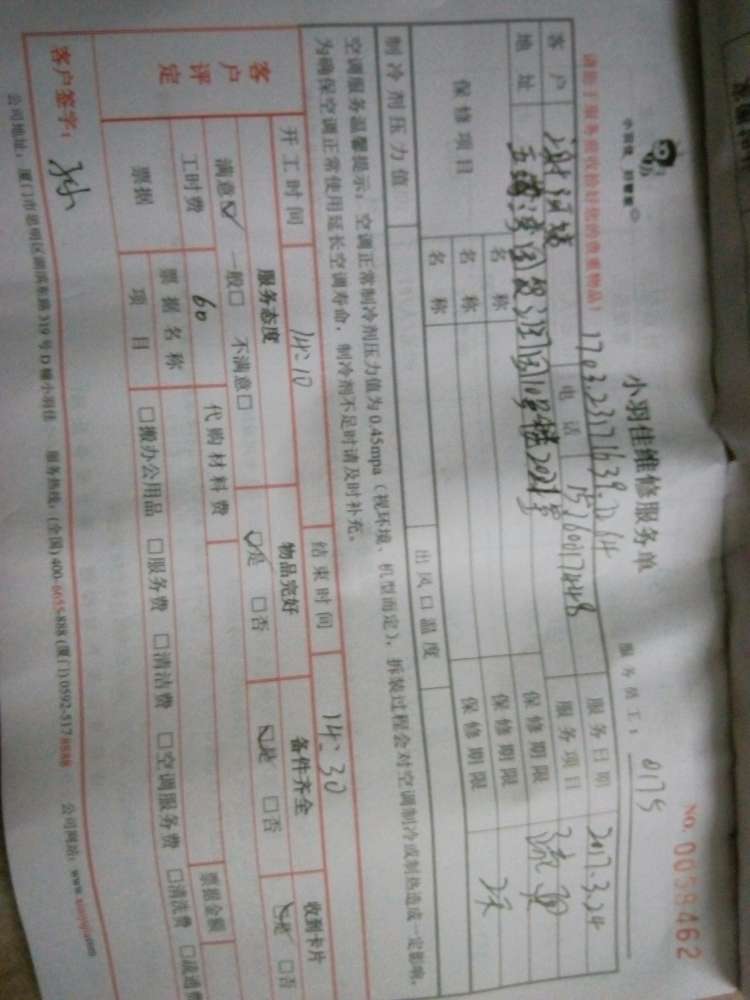 小羽佳维修服务单
NO. 0059462
小羽佳
请给予服务前收拾好您的贵重物品!
服务员工: 0175
客户 电话 服务日期 2017.3.24
地址 服务项目
保修项目 名称 保修期限
名称 保修期限
名称 保修期限
制冷剂压力值 出风口温度
空调服务温馨提示:空调正常制冷剂压力值为0.45mpa(视环境、机型而定),拆装过程会对空调制冷或制热造成一定影响,
为确保空调正常使用延长空调寿命,制冷剂不足时请及时补充。
开工时间 14:10 结束时间 14:30
客户评定 服务态度 物品完好 备件齐全 收到卡片
满意☑ 一般□ 不满意□ ☑是 □否 ☑是 □否 ☑是 □否
工时费 60 代购材料费
票据 票据名称 票据金额
项目 □搬办公用品 □服务费 □清洁费 □空调服务费 □清洗费 □疏通费
客户签字:
公司地址:厦门市思明区湖滨东路319号D幢小羽佳 服务热线:(全国)400-6655-888 (厦门)0592-5178888 公司网站:www.xiaoyujia.com